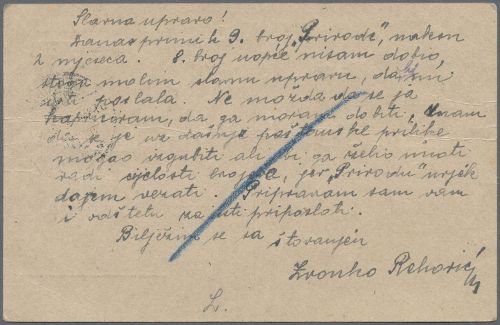 Slavna upravo!
Danas primih 9. broj „Prirode", nakon
2 mjeseca. 8. broj uopće nisam dobio,
stoga molim slavnu upravu, da bi mi
isti poslala. Ne možda da se ja
kapriciram, da ga moram dobiti, znam
da se je uz današnje poštanske prilike
mogao izgubiti ali bi ga želio imati
radi cjelosti brojeva, jer „Prirodu" uvijek
dajem vezati. Pripravan sam vam
i odštetu za isti priposlati.
Bilježim se sa
štovanjem
Zvonko Rehorić
L.